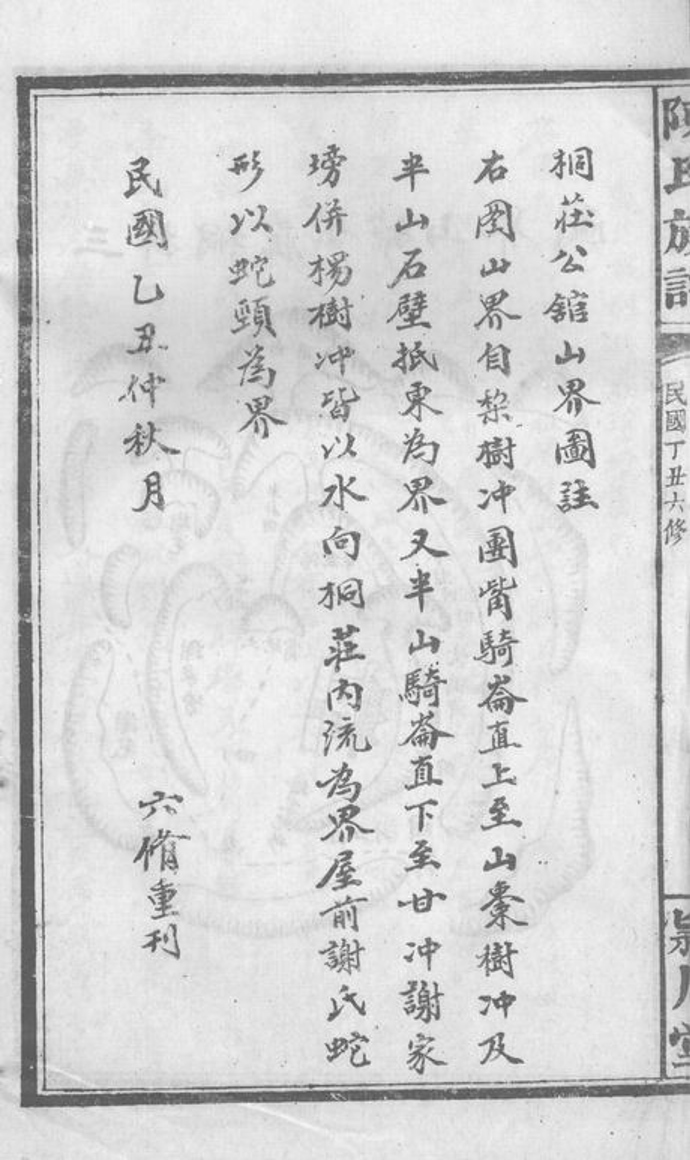 陳氏族譜
民國丁丑六修
桐莊公館山界圖註
右圖山界自棃樹冲團嘴騎崙直上至山棗樹冲及
半山石壁抵東為界又半山騎崙直下至甘冲謝家
塝併楊樹冲皆以水向桐莊內流為界屋前謝氏蛇
形以蛇頸為界
民國乙丑仲秋月
六脩重刊